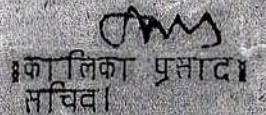 ॥कालिका प्रसाद॥
सचिव।